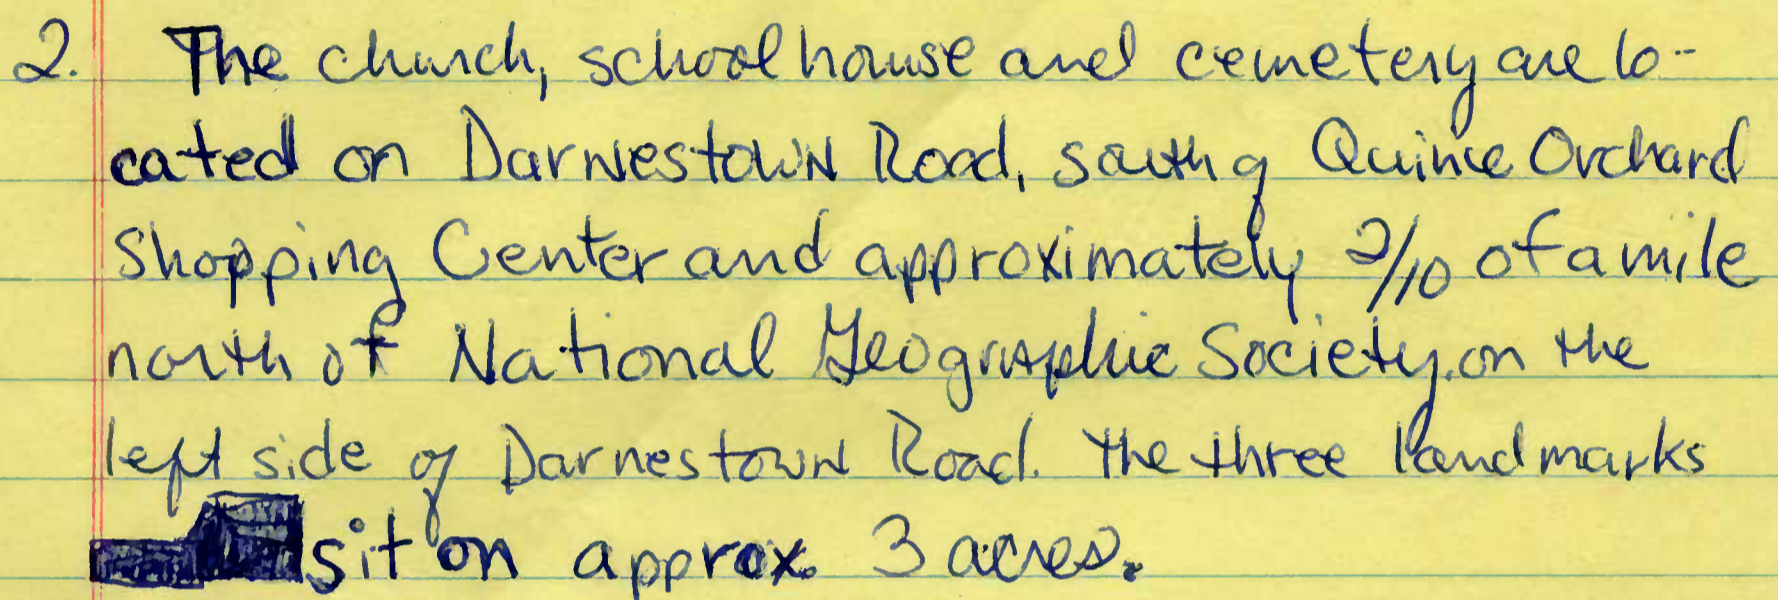 2. The church, schoolhouse and cemetery are lo-
cated on Darnestown Road, south of Quince Orchard
Shopping Center and approximately 2/10 of a mile
north of National Geographic Society, on the
left side of Darnestown Road. The three landmarks
sit on approx. 3 acres.